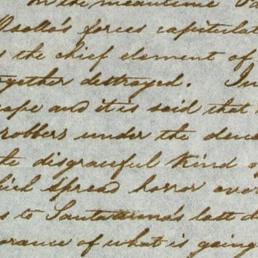 In the meantime
Osollo's forces capitulat
s the chief element of
together destroyed. In
cape and it is said that
robbers under the deno
te disgraceful kind o
hich spread horror over
s to Santa Anna's last d
orance of what is going